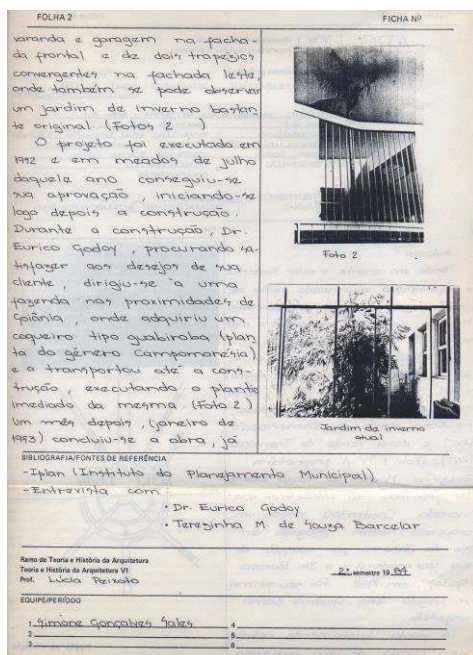 FOLHA 2
FICHA Nº
varanda e garagem na facha-
da frontal e de dois trapézios
convergentes na fachada leste,
onde também se pode observar
um jardim de inverno bastan
te original (Fotos 2 )
O projeto foi executado em
1952 e em meados de julho
daquele ano conseguiu-se
sua aprovação, iniciando-se
logo depois a construção.
Durante a construção, Dr.
Eurico Godoy, procurando sa-
tisfazer aos desejos de sua
cliente, dirigiu-se a uma
fazenda nas proximidades de
Goiânia, onde adquiriu um
coqueiro tipo guabiroba (plan
ta do gênero Campomanésia)
e o transportou até a cons-
trução, executando o plantio
imediado da mesma. (Foto 2)
Um mês depois, (janeiro de
1953) concluiu-se a obra, já
Foto 2
Jardim de inverno
atual
BIBLIOGRAFIA/FONTES DE REFERÊNCIA
- Iplan (Instituto do Planejamento Municipal)
- Entrevista com:
• Dr. Eurico Godoy
• Terezinha M. de Souza Barcelar
Ramo de Teoria e História da Arquitetura
Teoria e História da Arquitetura VI
2º semestre 1984
Prof. Lúcia Peixoto
EQUIPE/PERÍODO
1 Simone Gonçalves Sales
4
2
5
3
6